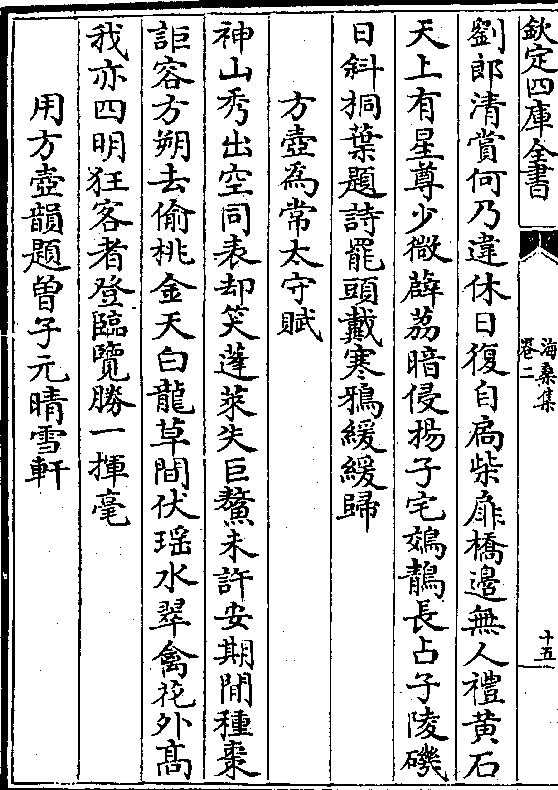 欽定四庫全書
海桑集
卷二
十五
劉郎清賞何乃違休日復自扃柴扉橋邊無人禮黃石
天上有星尊少微薜荔暗侵揚子宅鵁鶄長占子陵磯
日斜桐葉題詩罷頭戴寒鴉緩緩歸
方壺為常太守賦
神山秀出空同表却笑蓬萊失巨鰲未許安期閒種棗
詎容方朔去偷桃金天白龍草間伏瑶水翠禽花外髙
我亦四明狂客者登臨覽勝一揮毫
用方壺韻題曾子元晴雪軒